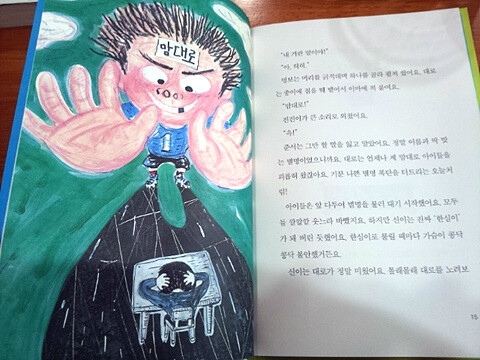 맘대로
1
"내 개란 말이야!"
"아, 하하."
빙보는 머리를 긁적대며 하나를 골라 펼쳐 줬어요. 대로
는 종이에 침을 퉤 뱉어서 이마에 척 붙여요.
"맘대로!"
진진이가 큰 소리로 외쳤어요.
"윽!"
준서는 그만 할 말을 잃고 말았어요. 정말 이름과 딱 맞
는 별명이었으니까요. 대로는 언제나 제 맘대로 아이들을
괴롭혀 왔잖아요. 기분 나쁜 별명 폭탄을 터뜨리는 오늘처
럼!
아이들은 앞 다투어 별명을 불러 대기 시작했어요. 모두
들 깔깔깔 웃느라 바빴지요. 하지만 신이는 진짜 '한심이'
가 돼 버린 듯했어요. 한심이로 불릴 때마다 가슴이 콩닥
콩닥 불안했거든요.
신이는 대로가 정말 미웠어요. 몰래몰래 대로를 노려보